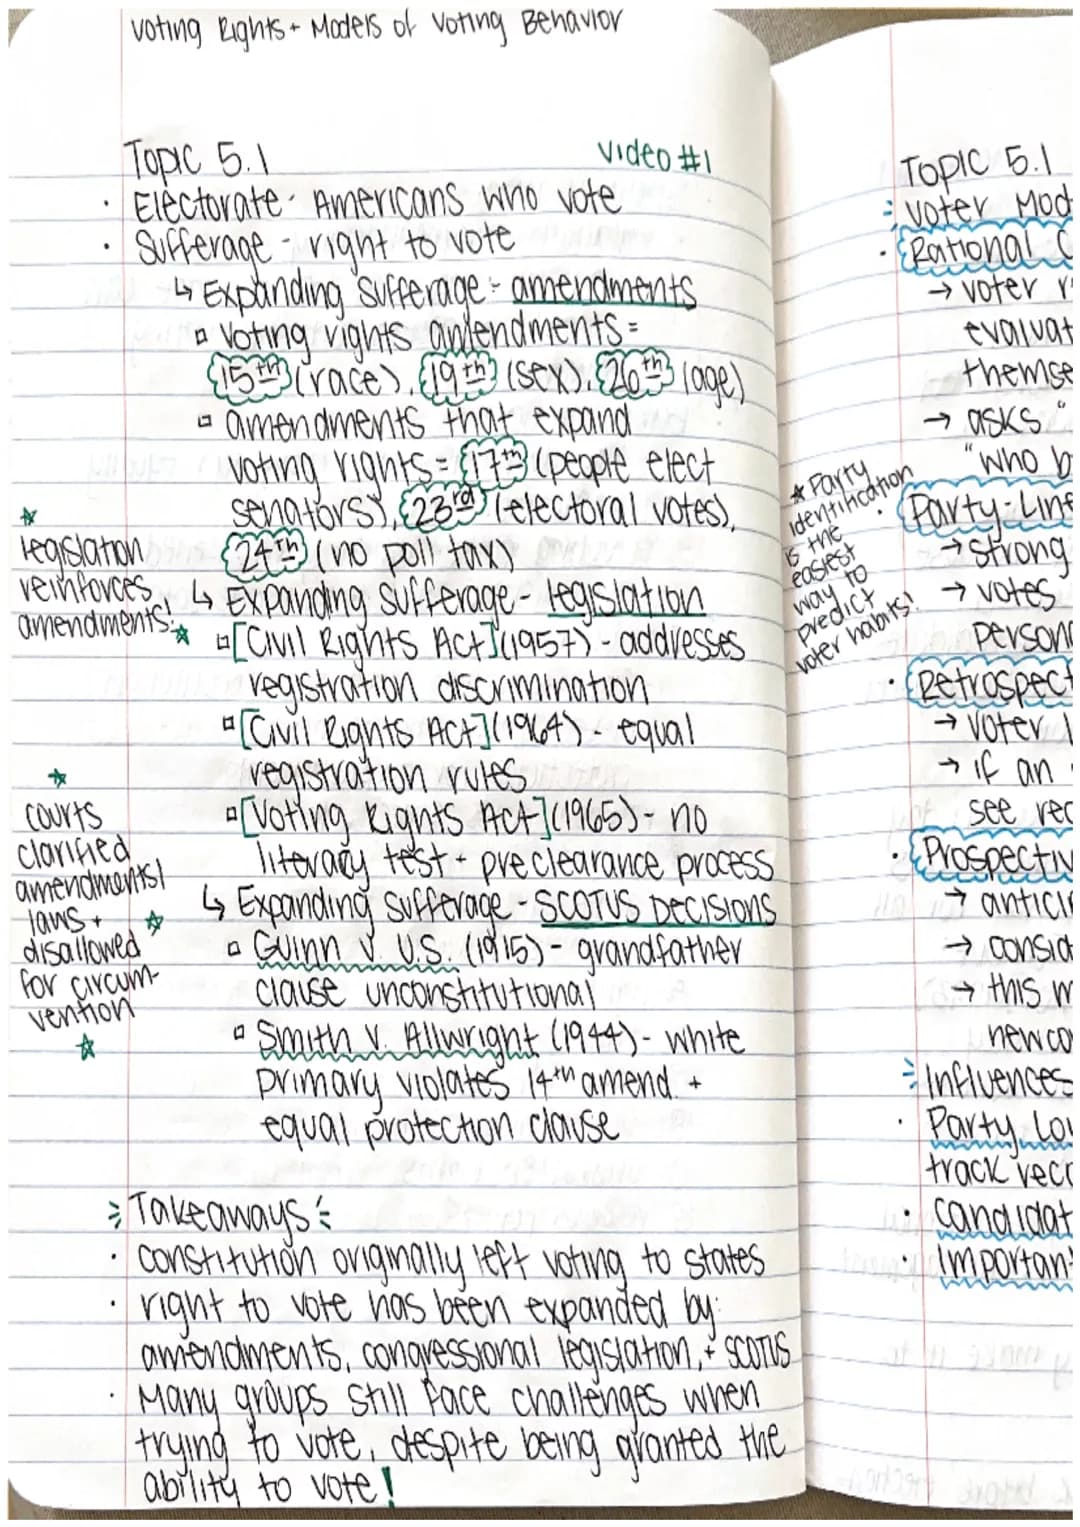 Voting Rights + Models of Voting Behavior
Topic 5.1
Video #1
· Electorate - Americans who vote
· Sufferage - right to vote
↳ Expanding Sufferage - amendments
▫ Voting rights amendments =
15th (race), 19th (sex), 26th (age)
▫ amendments that expand
voting rights = 17th (people elect
senators), 23rd (electoral votes),
24th (no poll tax)
☆
legislation
reinforces
amendments!
☆
↳ Expanding Sufferage - legislation
▫ [Civil Rights Act] (1957) - addresses
registration discrimination
▫ [Civil Rights Act] (1964) - equal
registration rules
▫ [Voting Rights Act] (1965) - no
literacy test + preclearance process
☆
courts
clarified
amendments/
laws +
disallowed
for circum-
vention
☆
☆
↳ Expanding Sufferage - SCOTUS Decisions
▫ Guinn v. U.S. (1915) - grandfather
clause unconstitutional
▫ Smith v. Allwright (1944) - white
primary violates 14th amend. +
equal protection clause
Takeaways
· constitution originally left voting to states
· right to vote has been expanded by:
amendments, congressional legislation, + SCOTUS
· Many groups still face challenges when
trying to vote, despite being granted the
ability to vote!
Topic 5.1
Voter Mod
· Rational C
→ voter r
evaluat
themse
→ asks "
"who b
☆ Party
identification
is the
easiest
way to
predict
voter habits!
· Party-Line
→ strong
→ votes
person
· Retrospect
→ voter l
→ if an
see rec
· Prospectiv
→ antici
→ consid
→ this m
new co
Influences
· Party Lo
track reco
· candidat
· Important